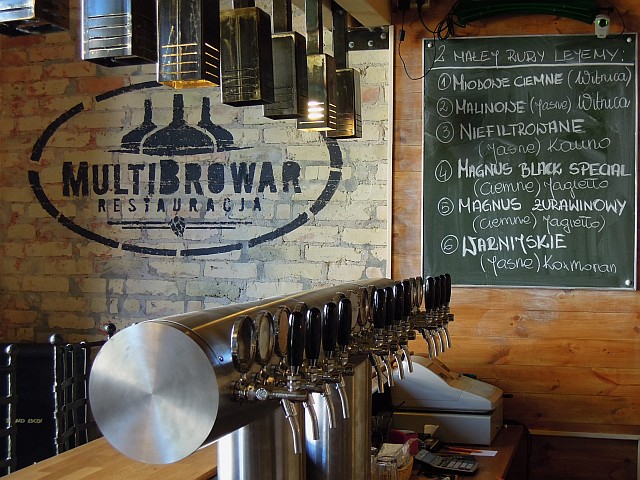 MULTIBROWAR
RESTAURACJA
Z MAŁEJ RURY LEJEMY:
① MIODOWE CIEMNE (Witnica)
② MALINOWE (Jasne) Witnica
③ NIEFILTROWANE
(Jasne) Kauno
④ MAGNUS BLACK SPECIAL
(Ciemne) Jagiełło
⑤ MAGNUS ŻURAWINOWY
(Ciemne) Jagiełło
⑥ WARNIJSKIE
(Jasne) Kormoran